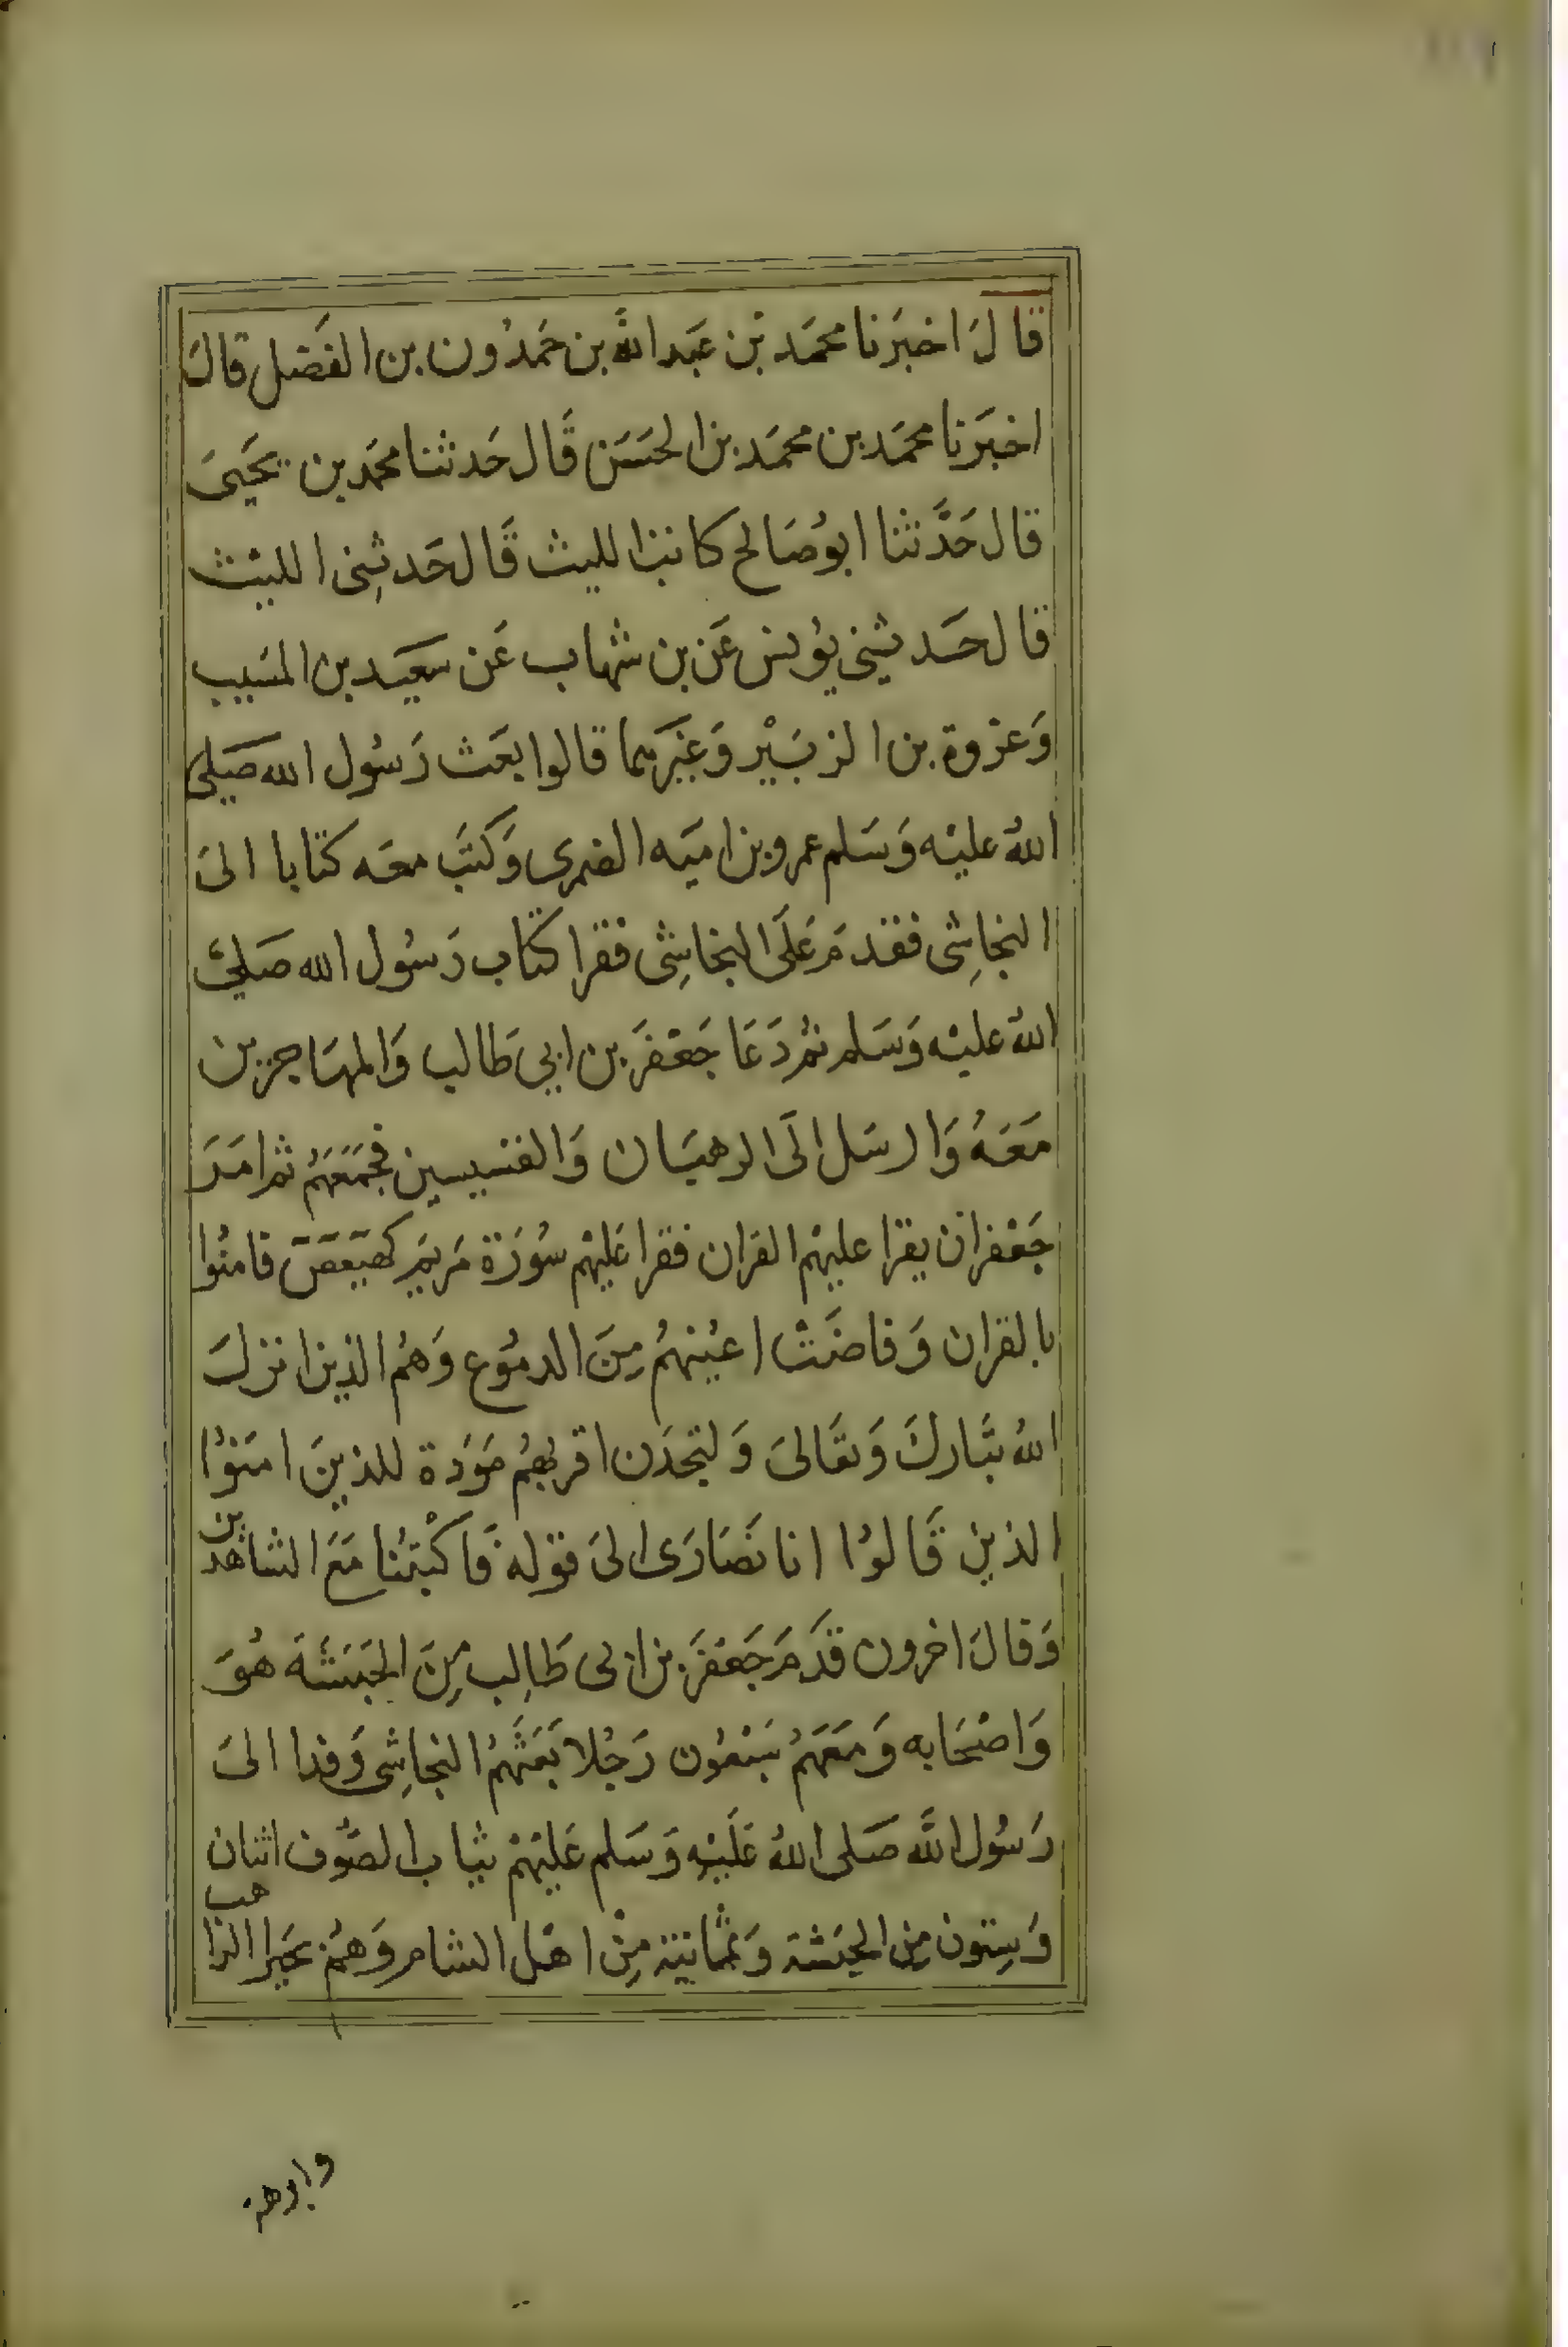 قالَ اخبَرنا محمَد بْن عَبَد اللَّه بن حَمدُون بن الفَضل قالَ
اخبَرنا محمَد بن محمَد بن الحسَن قَال حَدثنا محمَد بن يحَيىَ
قال حَدَّثنا ابوُ صَالح كاتب الليث قَال حَدثنِى الليْث
قال حَدثني يوُنس عَن بن شهاب عَن سَعيَد بن المسَيب
وَعرْوة بن الزبَيْر وَغيَرهما قالوا بعَث رَسُول الله صَلى
اللهُ عليْه وَسَلم عمرو بن اميَه الضمرى وَكتَب معَه كتابا الىَ
النجاشِى فقدمَ عَلَى النجاشِى فقرا كتاب رَسُول الله صَلىَّ
اللهُ عليْه وَسَلم ثم دَعَا جَعْفَر بن ابي طَالب وَالمهَاجرين
مَعَهُ وَارسَل الَى الرهبَان وَالقسيسين فجمَعَهُمْ ثم امَرَ
جَعْفر ان يقرا عليهْم القران فقرا عَليهْم سُورَة مَريَم كهيَعَصَ فامنُوا
بالقران وَفاضَتْ اعيُنهُم مِنَ الدمُوع وَهُم الذين انزلَ
اللهُ تبَارك وَتعَالىَ وَلتجدَن اقربهُم مَوَدة للذينَ امَنوُا
الذين قَالوُا انا نصَارَى الىَ قوله فَاكتْبنُا مَعَ الشاهدين
وَقالَ اخرون قَدَمَ جَعفَر بن ابى طَالِب مِنَ الحَبَشَة هُوَ
وَاصْحَابه وَمَعَهُمْ سَبْعُون رَجُلا بَعَثَهُمُ النجاشِى وَفدا الىَ
رَسُول اللَّه صَلى اللهُ عَلَيْه وَسَلم عَليْهِمْ ثيَاب الصُّوف اثنان
وَسِتون مِن الحَبشة وَثمانية مِنْ اهْل الشام وَهمُ بحَيرا الراهب
وابرهه